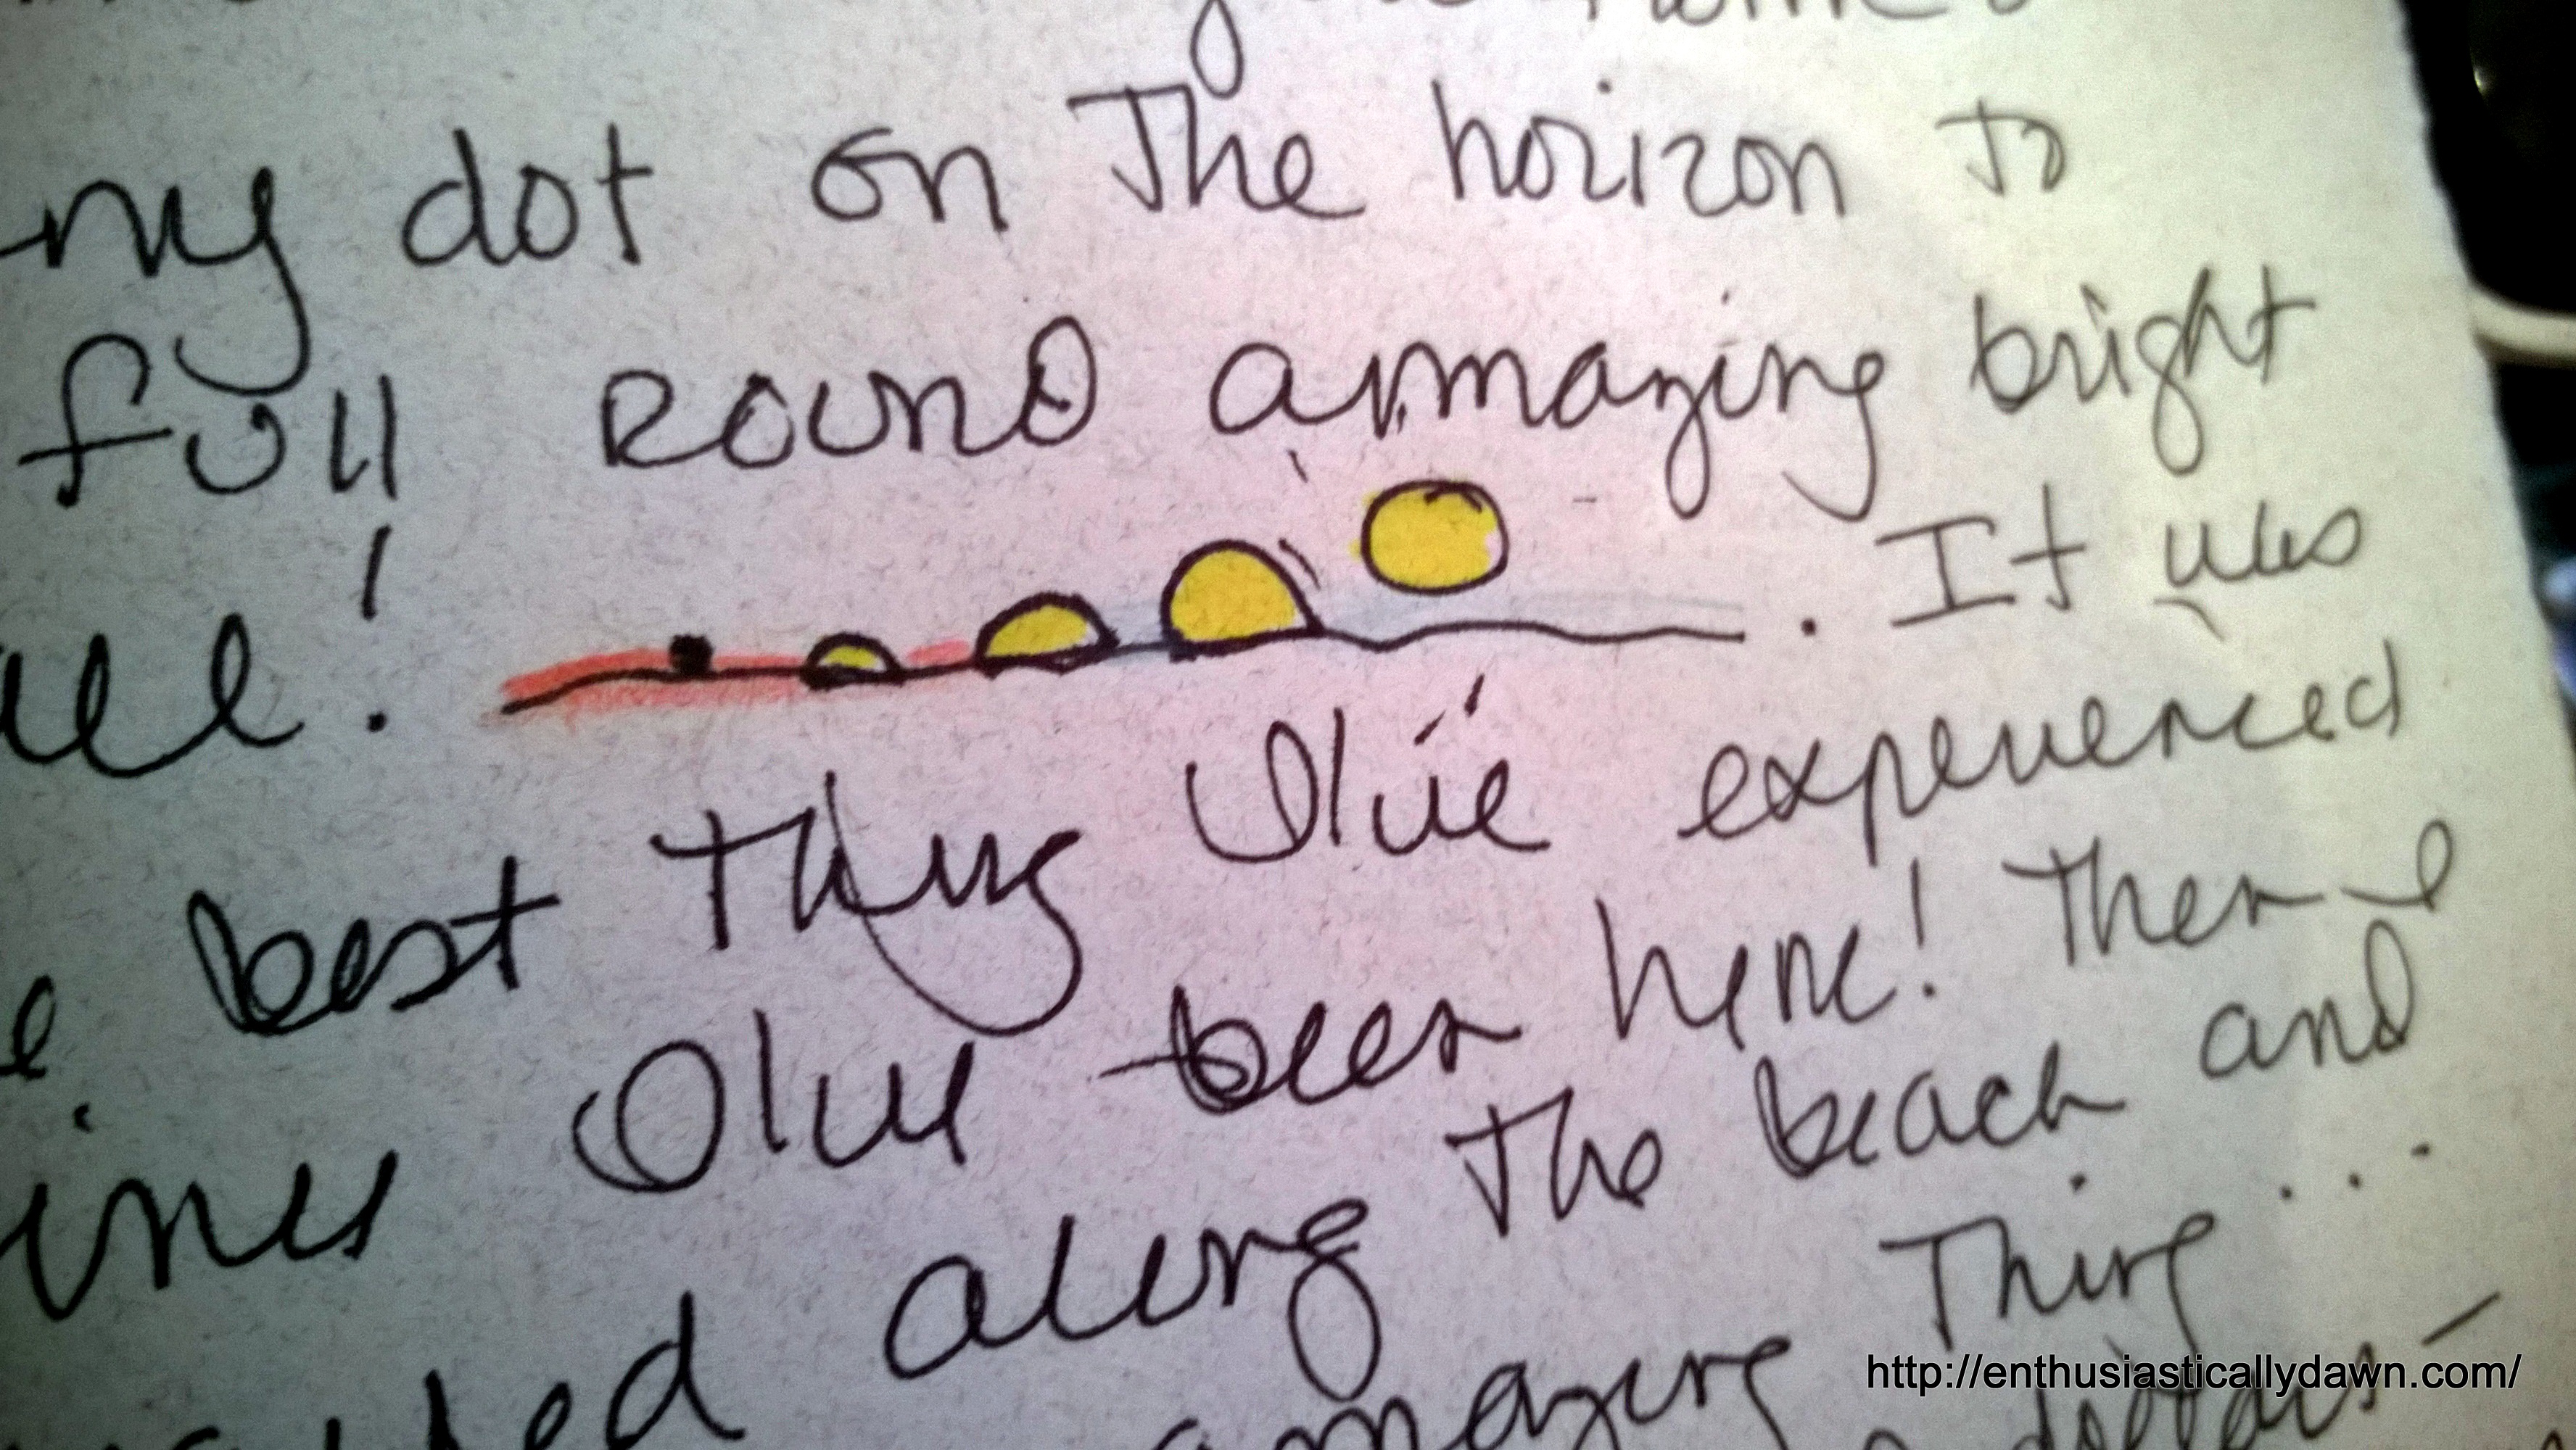 dot on The horizon to
full Round amazing bright
! . It was
best Thing I've experienced
I've been here! Then I
along The beach and
amazing Thing...
http://enthusiasticallydawn.com/